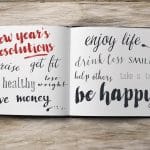 new year's
resolutions
exercise get fit
healthy lose weight
save money...
enjoy life
drink less SMILE
help others take a trip
be happy